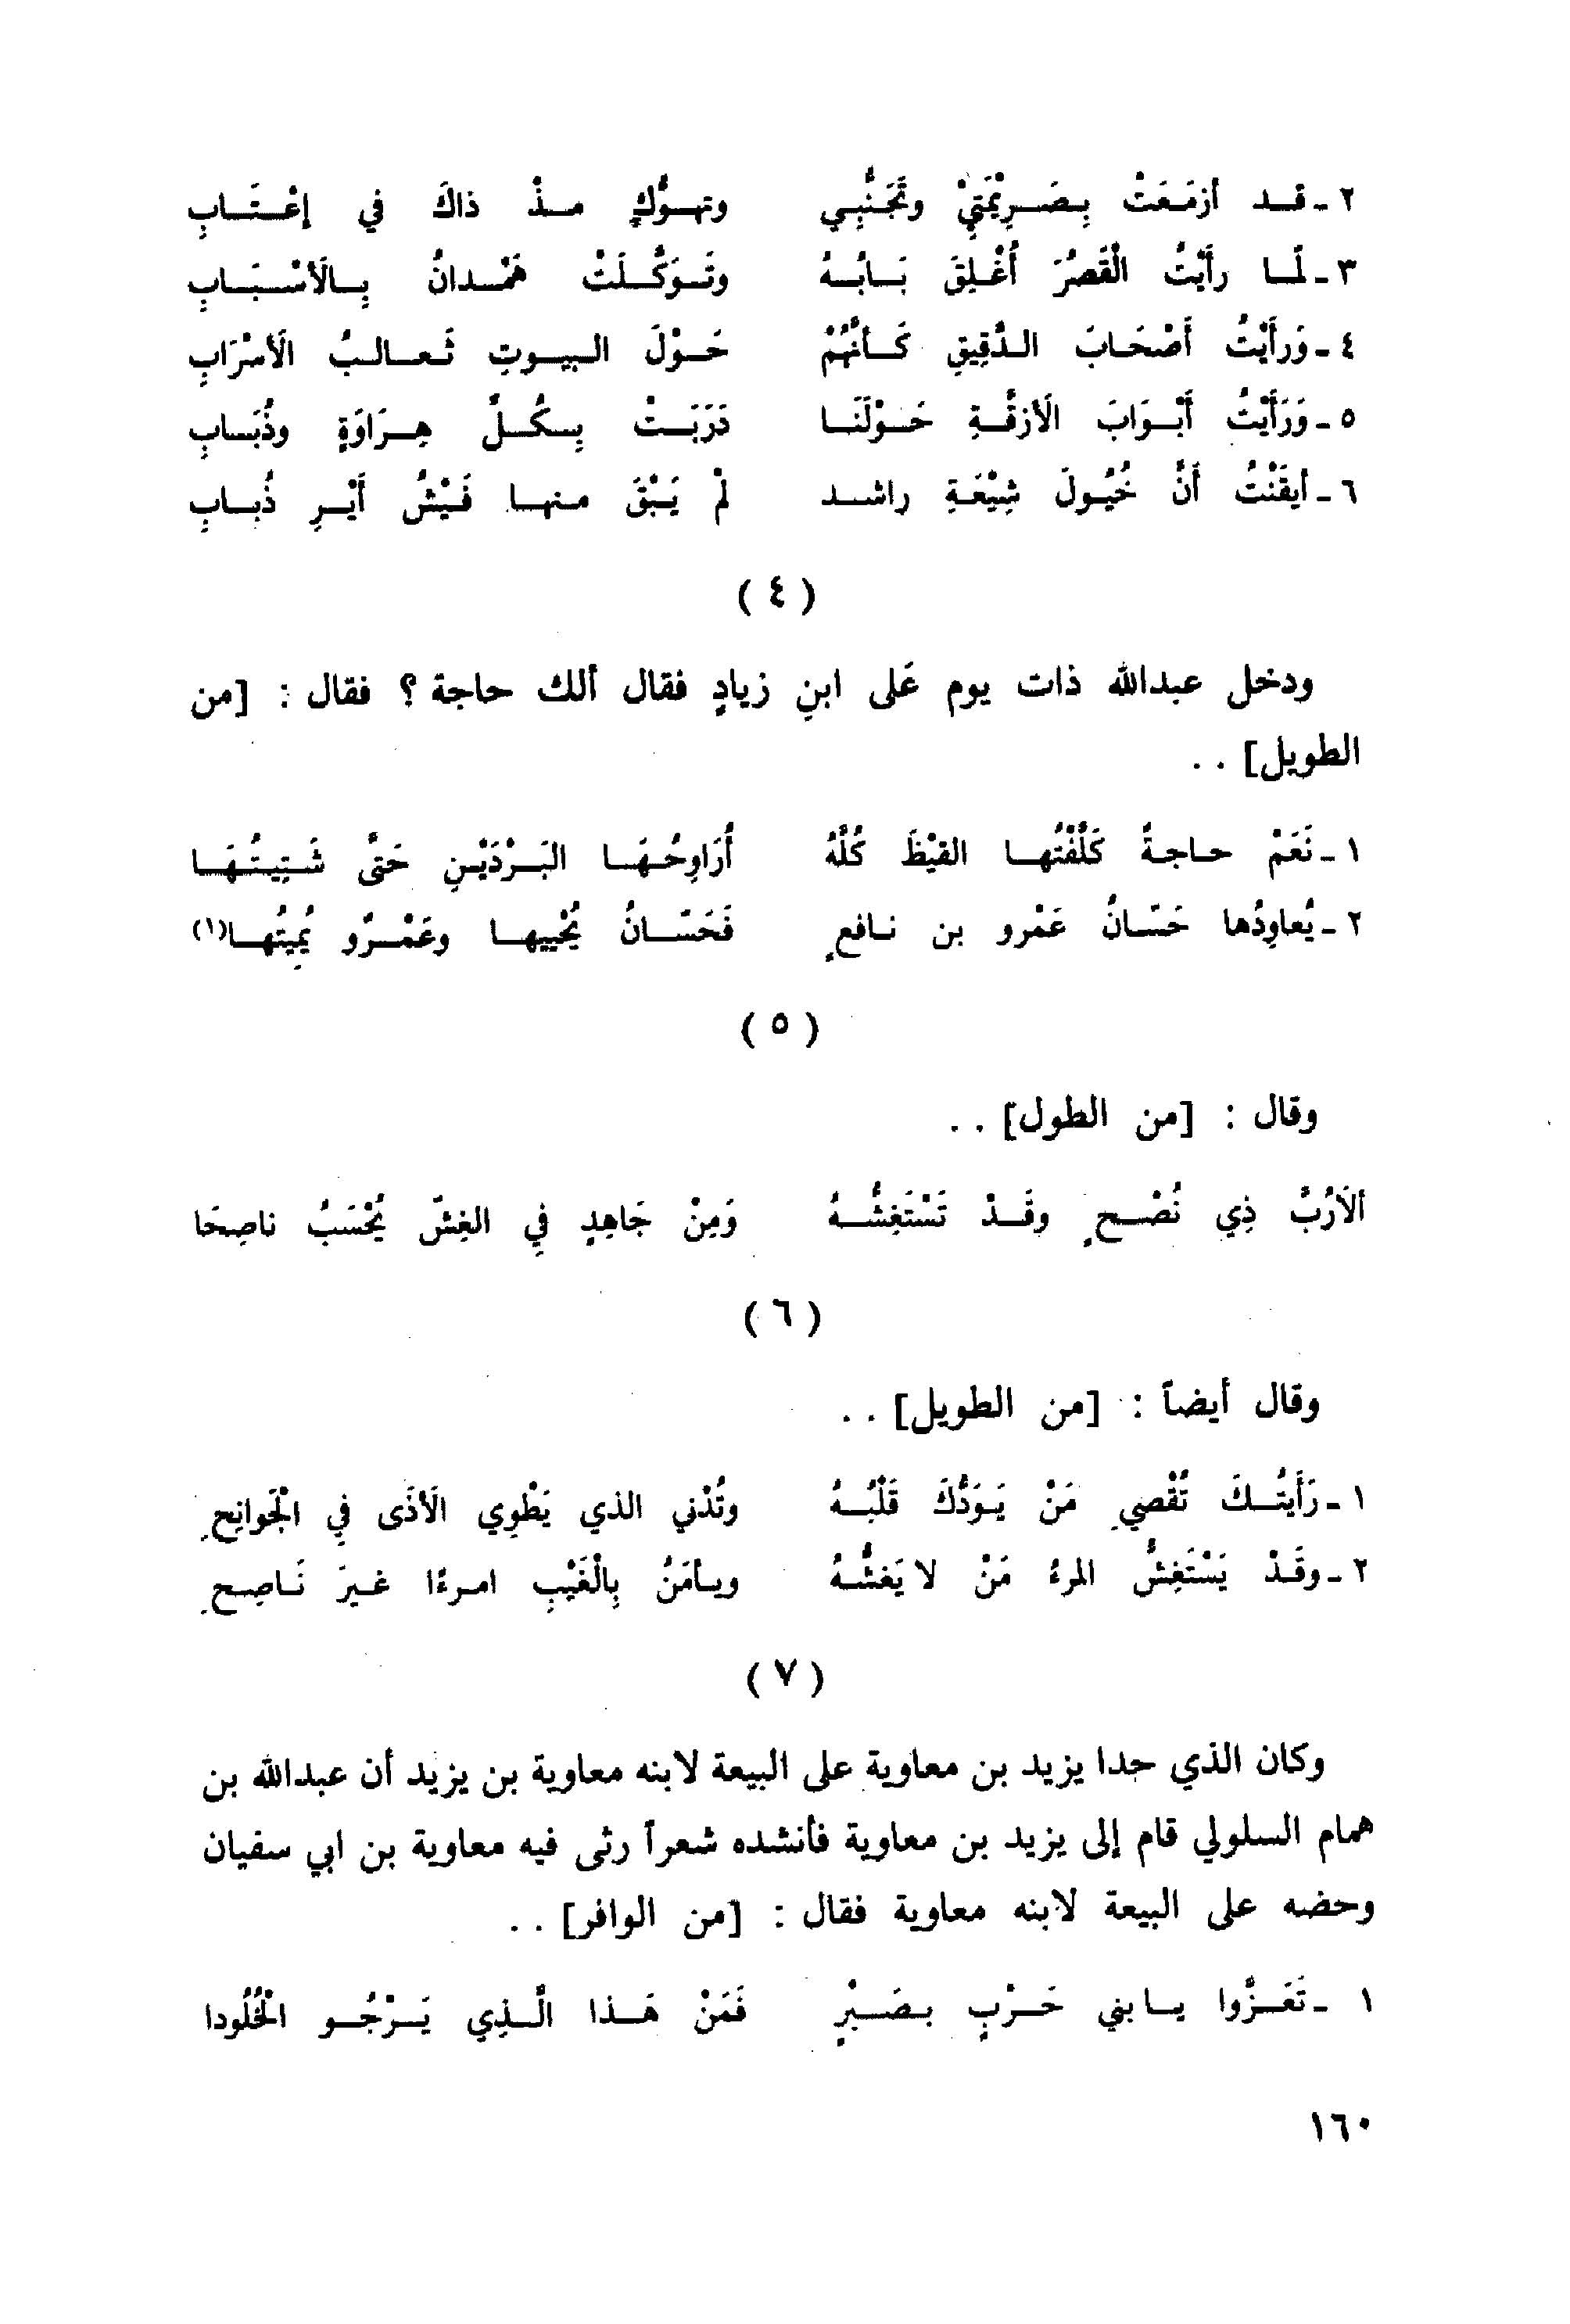 ٢ - قد أزمَعَتْ بِصَرِيْمَتِيْ وتَجَنُّبِي وتهوُّكٍ مذْ ذاكَ في إعْتَابِ
٣ - لمّا رأيْتُ القَصْرَ أُغْلِقَ بَابُهُ وتَوَكَّلَتْ هَمْدانُ بِالأسْبَابِ
٤ - وَرَأَيْتُ أصْحَابَ الدَّقِيقِ كَأنَّهُمْ حَوْلَ البيوتِ ثَعالبُ الأسْرَابِ
٥ - وَرَأَيْتُ أبْوَابَ الأزقَّةِ حَوْلَنَا دَرَبَتْ بِكُلِّ هِرَاوَةٍ وذُبَابِ
٦ - أيقَنْتُ أنَّ خُيُولَ شِيْعَةِ راشد لمْ يَبْقَ منها فَيْشُ أَيْرِ ذُبابِ
( ٤ )
ودخل عبدالله ذات يوم عَلى ابنِ زيادٍ فقال ألك حاجة ؟ فقال : [من
الطويل] . .
١ - نَعَمْ حاجةٌ كَلَّفْتُها القيْظَ كُلَّهُ أُرَاوِحُهَا البَرْدَيْنِ حَتَّى شَتِيتُهَا
٢ - يُعاوِدُها حَسّانُ عَمْرو بن نافعٍ فَحَسّانُ يُحْييها وعَمْرٌو يُمِيتُها(١)
( ٥ )
وقال : [من الطول] . .
ألاَرُبَّ ذِي نُصْحٍ وقَدْ تَسْتَغِشُّهُ وَمِنْ جَاهِدٍ فِي الغِشّ يُحْسَبُ ناصِحَا
( ٦ )
وقال أيضاً : [من الطويل] . .
١ - رَأَيتُكَ تُقْصي مَنْ يَوَدُّكَ قَلْبُهُ وتُدْني الذي يَطْوِي الأذَى فِي الجَوانِحِ
٢ - وقَدْ يَسْتَغِشُّ المرءُ مَنْ لا يَغشُّهُ ويأمَنُ بِالْغَيْبِ امرءًا غيرَ نَاصِحِ
( ٧ )
وكان الذي حدا يزيد بن معاوية على البيعة لابنه معاوية بن يزيد أن عبدالله بن
همام السلولي قام إلى يزيد بن معاوية فأنشده شعراً رثى فيه معاوية بن ابي سفيان
وحضه على البيعة لابنه معاوية فقال : [من الوافر] . .
١ - تَعَزَّوا يا بني حَرْبٍ بصَبْرٍ فَمَنْ هَذا الَّذِي يَرْجُو الخُلُودا
١٦٠